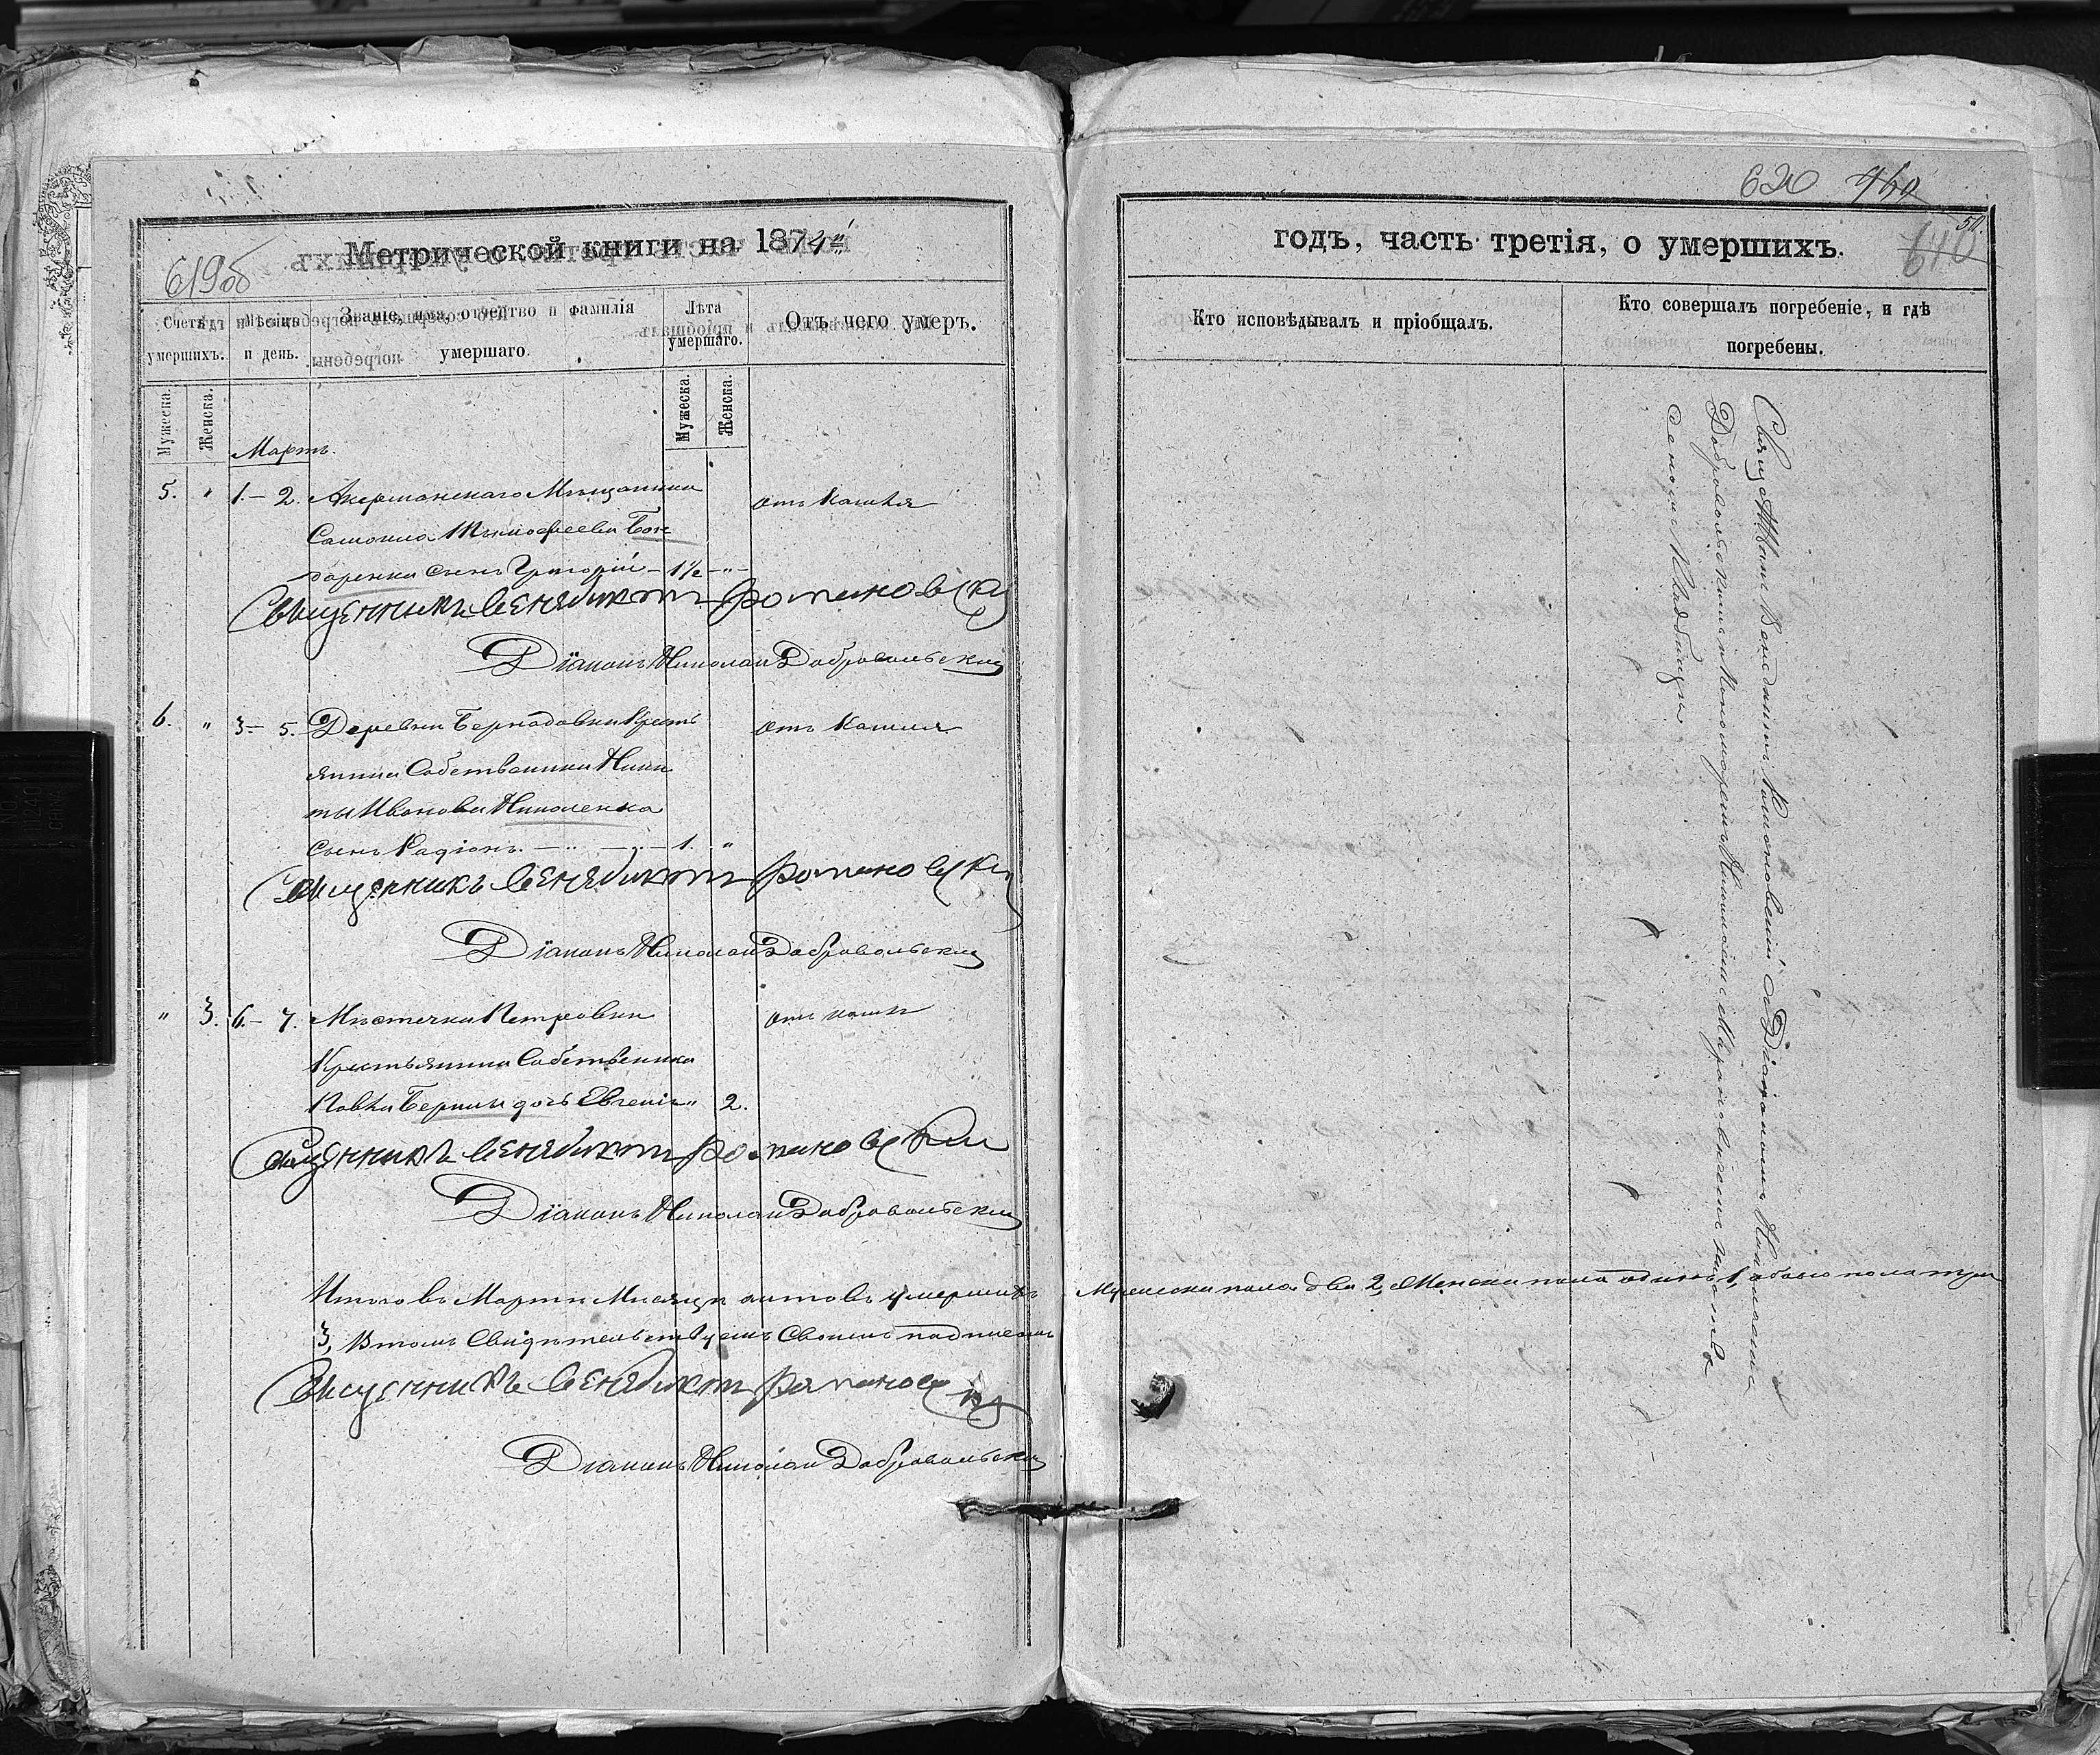 619об
Метрической книги на 1874й
Счетъ умершихъ.
Мѣсяцъ и день.
Званіе, имя, отчество и фамилія умершаго.
Лѣта умершаго.
Отъ чего умеръ.
Мужеска.
Женска.
Мужеска.
Женска.
Мартъ.
5. " 1.– 2. Акерманскаго Мѣщанина отъ Кашля
Самоила Тимофеева Бон
даренка сынъ Григорій – 1½ – " –
Священникъ Венедиктъ Романовскій
Діаконъ Николай Добровольскій
6. " 3– 5. Деревни Бернадовки Кресть отъ Кашля
янина Собственника Ники
ты Иванова Николенка
сынъ Радіонъ. – " – " – 1. "
Священникъ Венедиктъ Романовскій
Діаконъ Николай Добровольскій
" 3. 6.– 7. Мѣстечка Петровки отъ кашля
Крестьянина Собственника
Дочь Евгенія " 2.
Священникъ Венедиктъ Романовскій
Діаконъ Николай Добровольскій
Итого въ Мартѣ Мѣсяцѣ актовъ умершихъ
3, Въ томъ Свидѣтельствуемъ Своимъ подписомъ
Священникъ Венедиктъ Романовскій
Діаконъ Николай Добровольскій
620 460
50.
610
годъ, часть третія, о умершихъ.
Кто исповѣдывалъ и пріобщалъ.
Кто совершалъ погребеніе, и гдѣ погребены.
Венедиктъ Романовскій съ Діакономъ Николаемъ
Добровольскимъ и Пономаремъ Николаемъ
Кладбищи
Мужеска пола два 2, Женска пола одинъ 1, обоего пола три